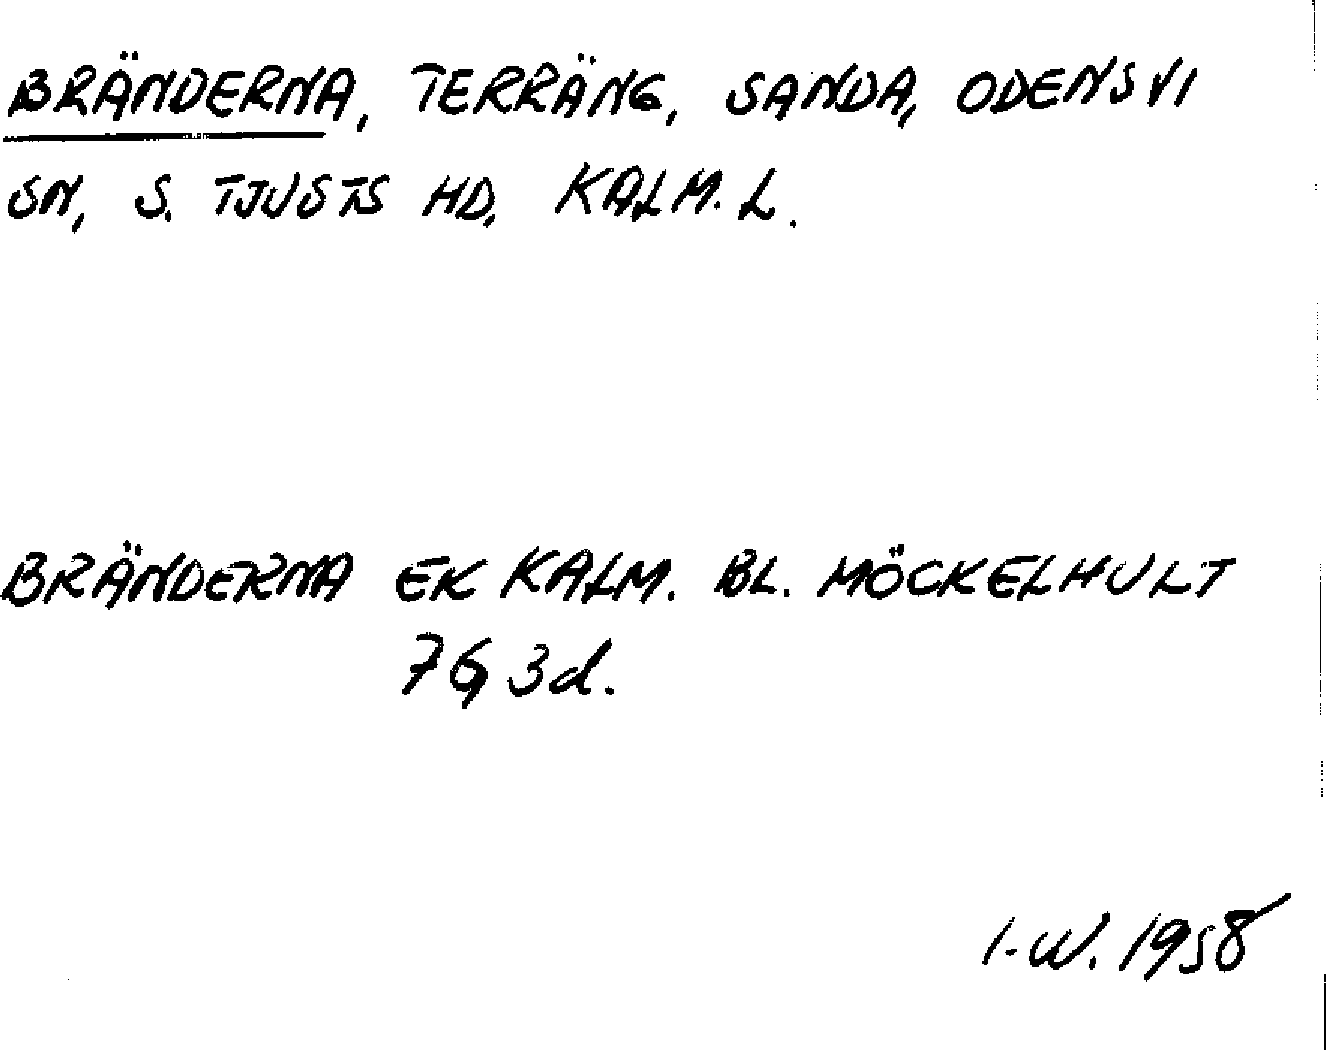 BRÄNDERNA, TERRÄNG, SANDA, ODENSVI
SN, S. TJUSTS HD, KALM. L.
BRÄNDERNA EK KALM. BL. MÖCKELHULT
7G 3d.
I-W. 1958